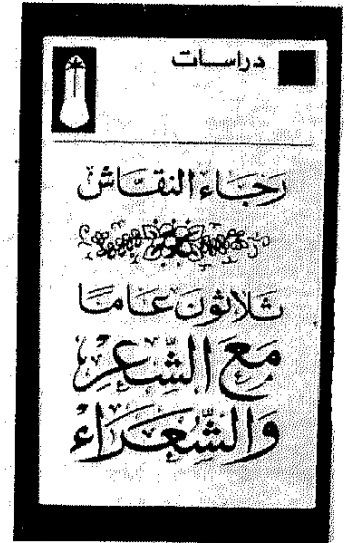 دراسات
رَجَاء النقّاش
ثَلاثون عَامًا
مَعَ الشِّعرِ
وَالشُّعَرَاءِ